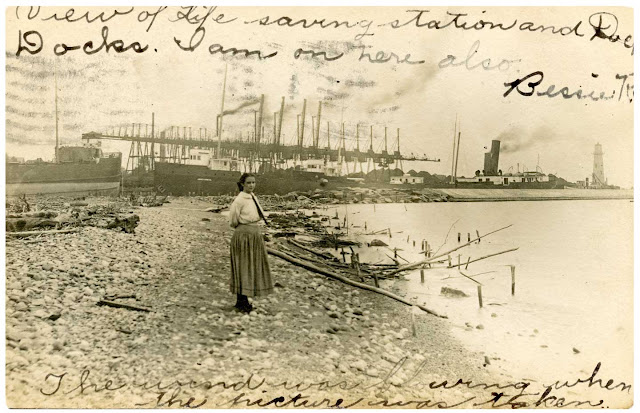 View of Life saving station and
Docks. I am on here also
Bessie
The wind was blowing when
the picture was taken.